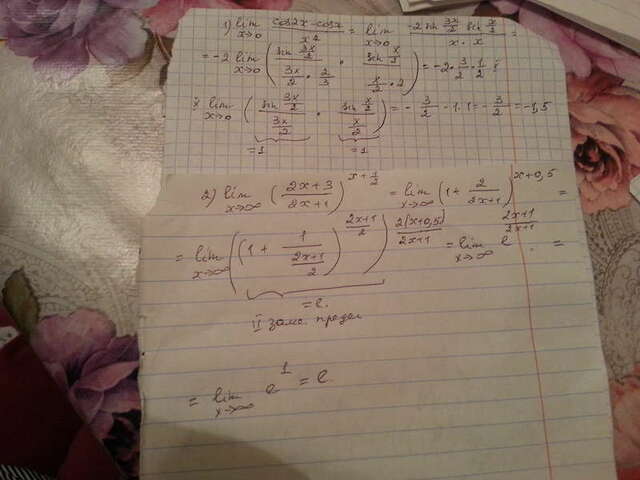 1) lim x→0 (cos2x - cosx)/x² = lim x→0 (-2 sin 3x/2 sin x/2)/(x · x) =
= -2 lim x→0 ( (sin 3x/2)/(3x/2 · 2/3) · (sin x/2)/(x/2 · 2) ) = -2 · 3/2 · 1/2 ·
lim x→0 ( (sin 3x/2)/(3x/2) · (sin x/2)/(x/2) ) = - 3/2 · 1 · 1 = - 3/2 = -1,5
=1 =1
2) lim x→∞ ( (2x+3)/(2x+1) )^(x+1/2) = lim x→∞ (1 + 2/(2x+1))^(x+0,5) =
= lim x→∞ ( (1 + 1/((2x+1)/2))^((2x+1)/2) )^(2(x+0,5)/(2x+1)) = lim x→∞ e^((2x+1)/(2x+1)) =
= e.
II зам. предел
= lim x→∞ e^1 = e